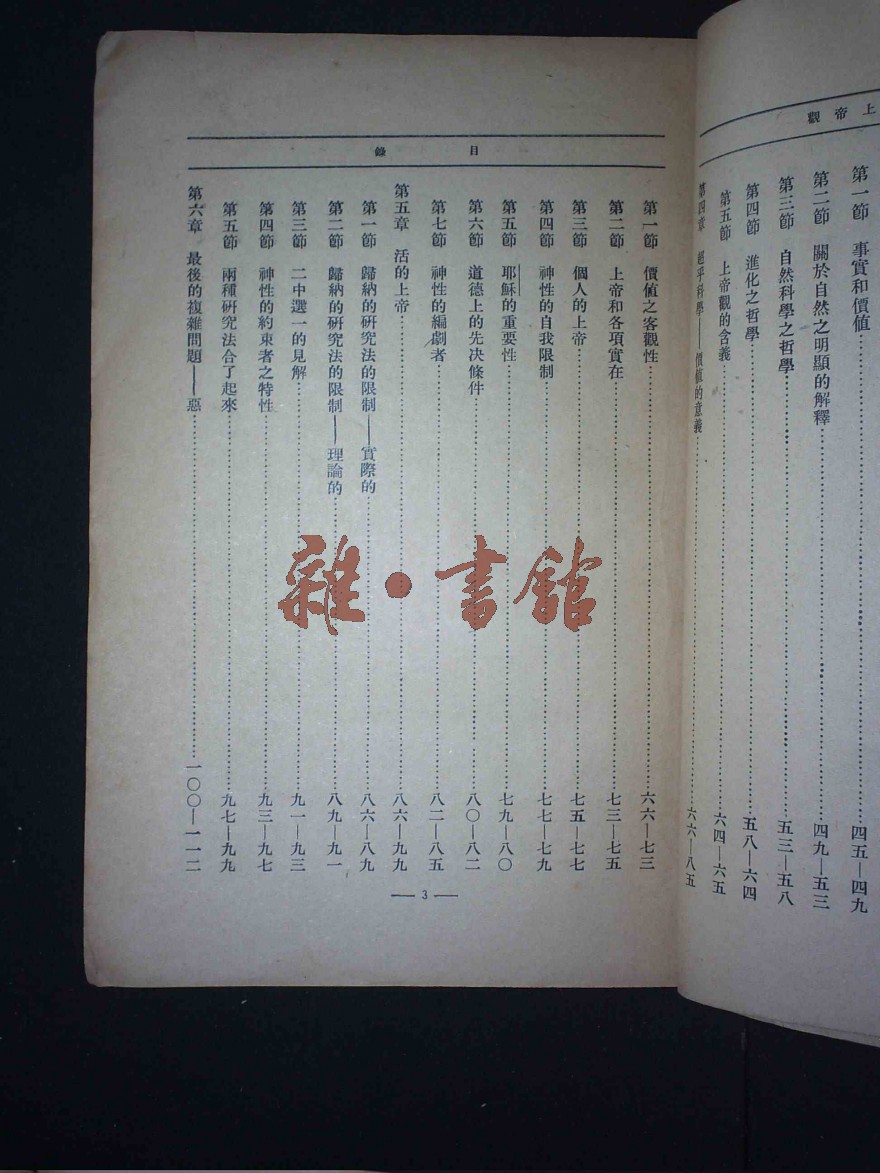 上帝觀
第一節 事實和價値⋯⋯四五—四九
第二節 關於自然之明顯的解釋⋯⋯四九—五三
第三節 自然科學之哲學⋯⋯五三—五八
第四節 進化之哲學⋯⋯五八—六四
第五節 上帝觀的含義⋯⋯六四—六五
第四章 超乎科學——價値的意義⋯⋯六六—八五
目錄
第一節 價値之客觀性⋯⋯六六—七三
第二節 上帝和各項實在⋯⋯七三—七五
第三節 個人的上帝⋯⋯七五—七七
第四節 神性的自我限制⋯⋯七七—七九
第五節 耶穌的重要性⋯⋯七九—八〇
第六節 道德上的先決條件⋯⋯八〇—八二
第七節 神性的編劇者⋯⋯八二—八五
第五章 活的上帝⋯⋯八六—九九
第一節 歸納的研究法的限制——實際的⋯⋯八六—八九
第二節 歸納的研究法的限制——理論的⋯⋯八九—九一
第三節 二中選一的見解⋯⋯九一—九三
第四節 神性的約束者之特性⋯⋯九三—九七
第五節 兩種研究法合了起來⋯⋯九七—九九
第六章 最後的複雜問題——惡⋯⋯一〇〇—一一二
— 3 —
雜·書館